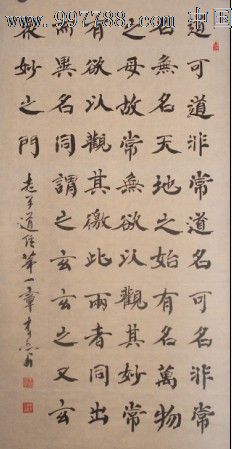 www.997788.com 中国
道可道非常道名可名非常
名無名天地之始有名萬物
之母故常無欲以觀其妙常
有欲以觀其徼此兩者同出
而異名同謂之玄玄之又玄
衆妙之門
老子道經第一章